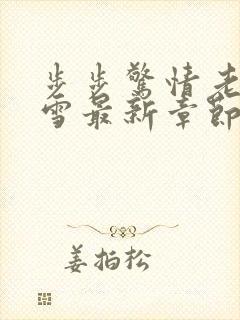 步步驚情老
雪最新章節
姜拍松